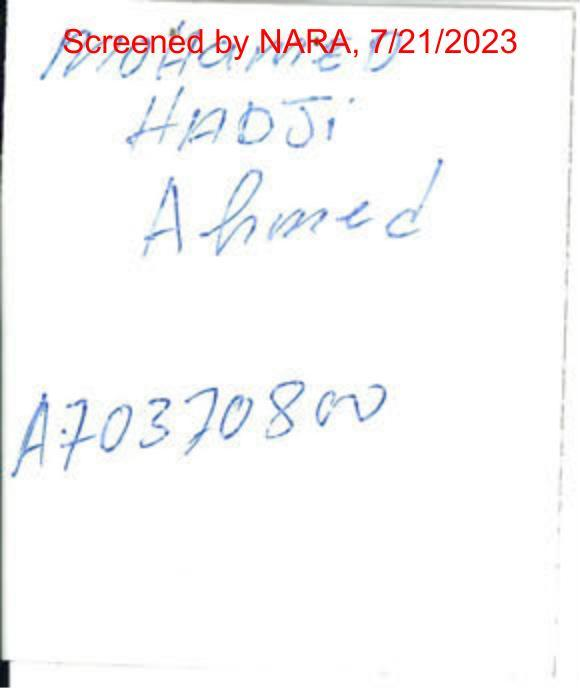 Screened by NARA, 7/21/2023
MOHAMED
HADJi
Ahmed
A70370800